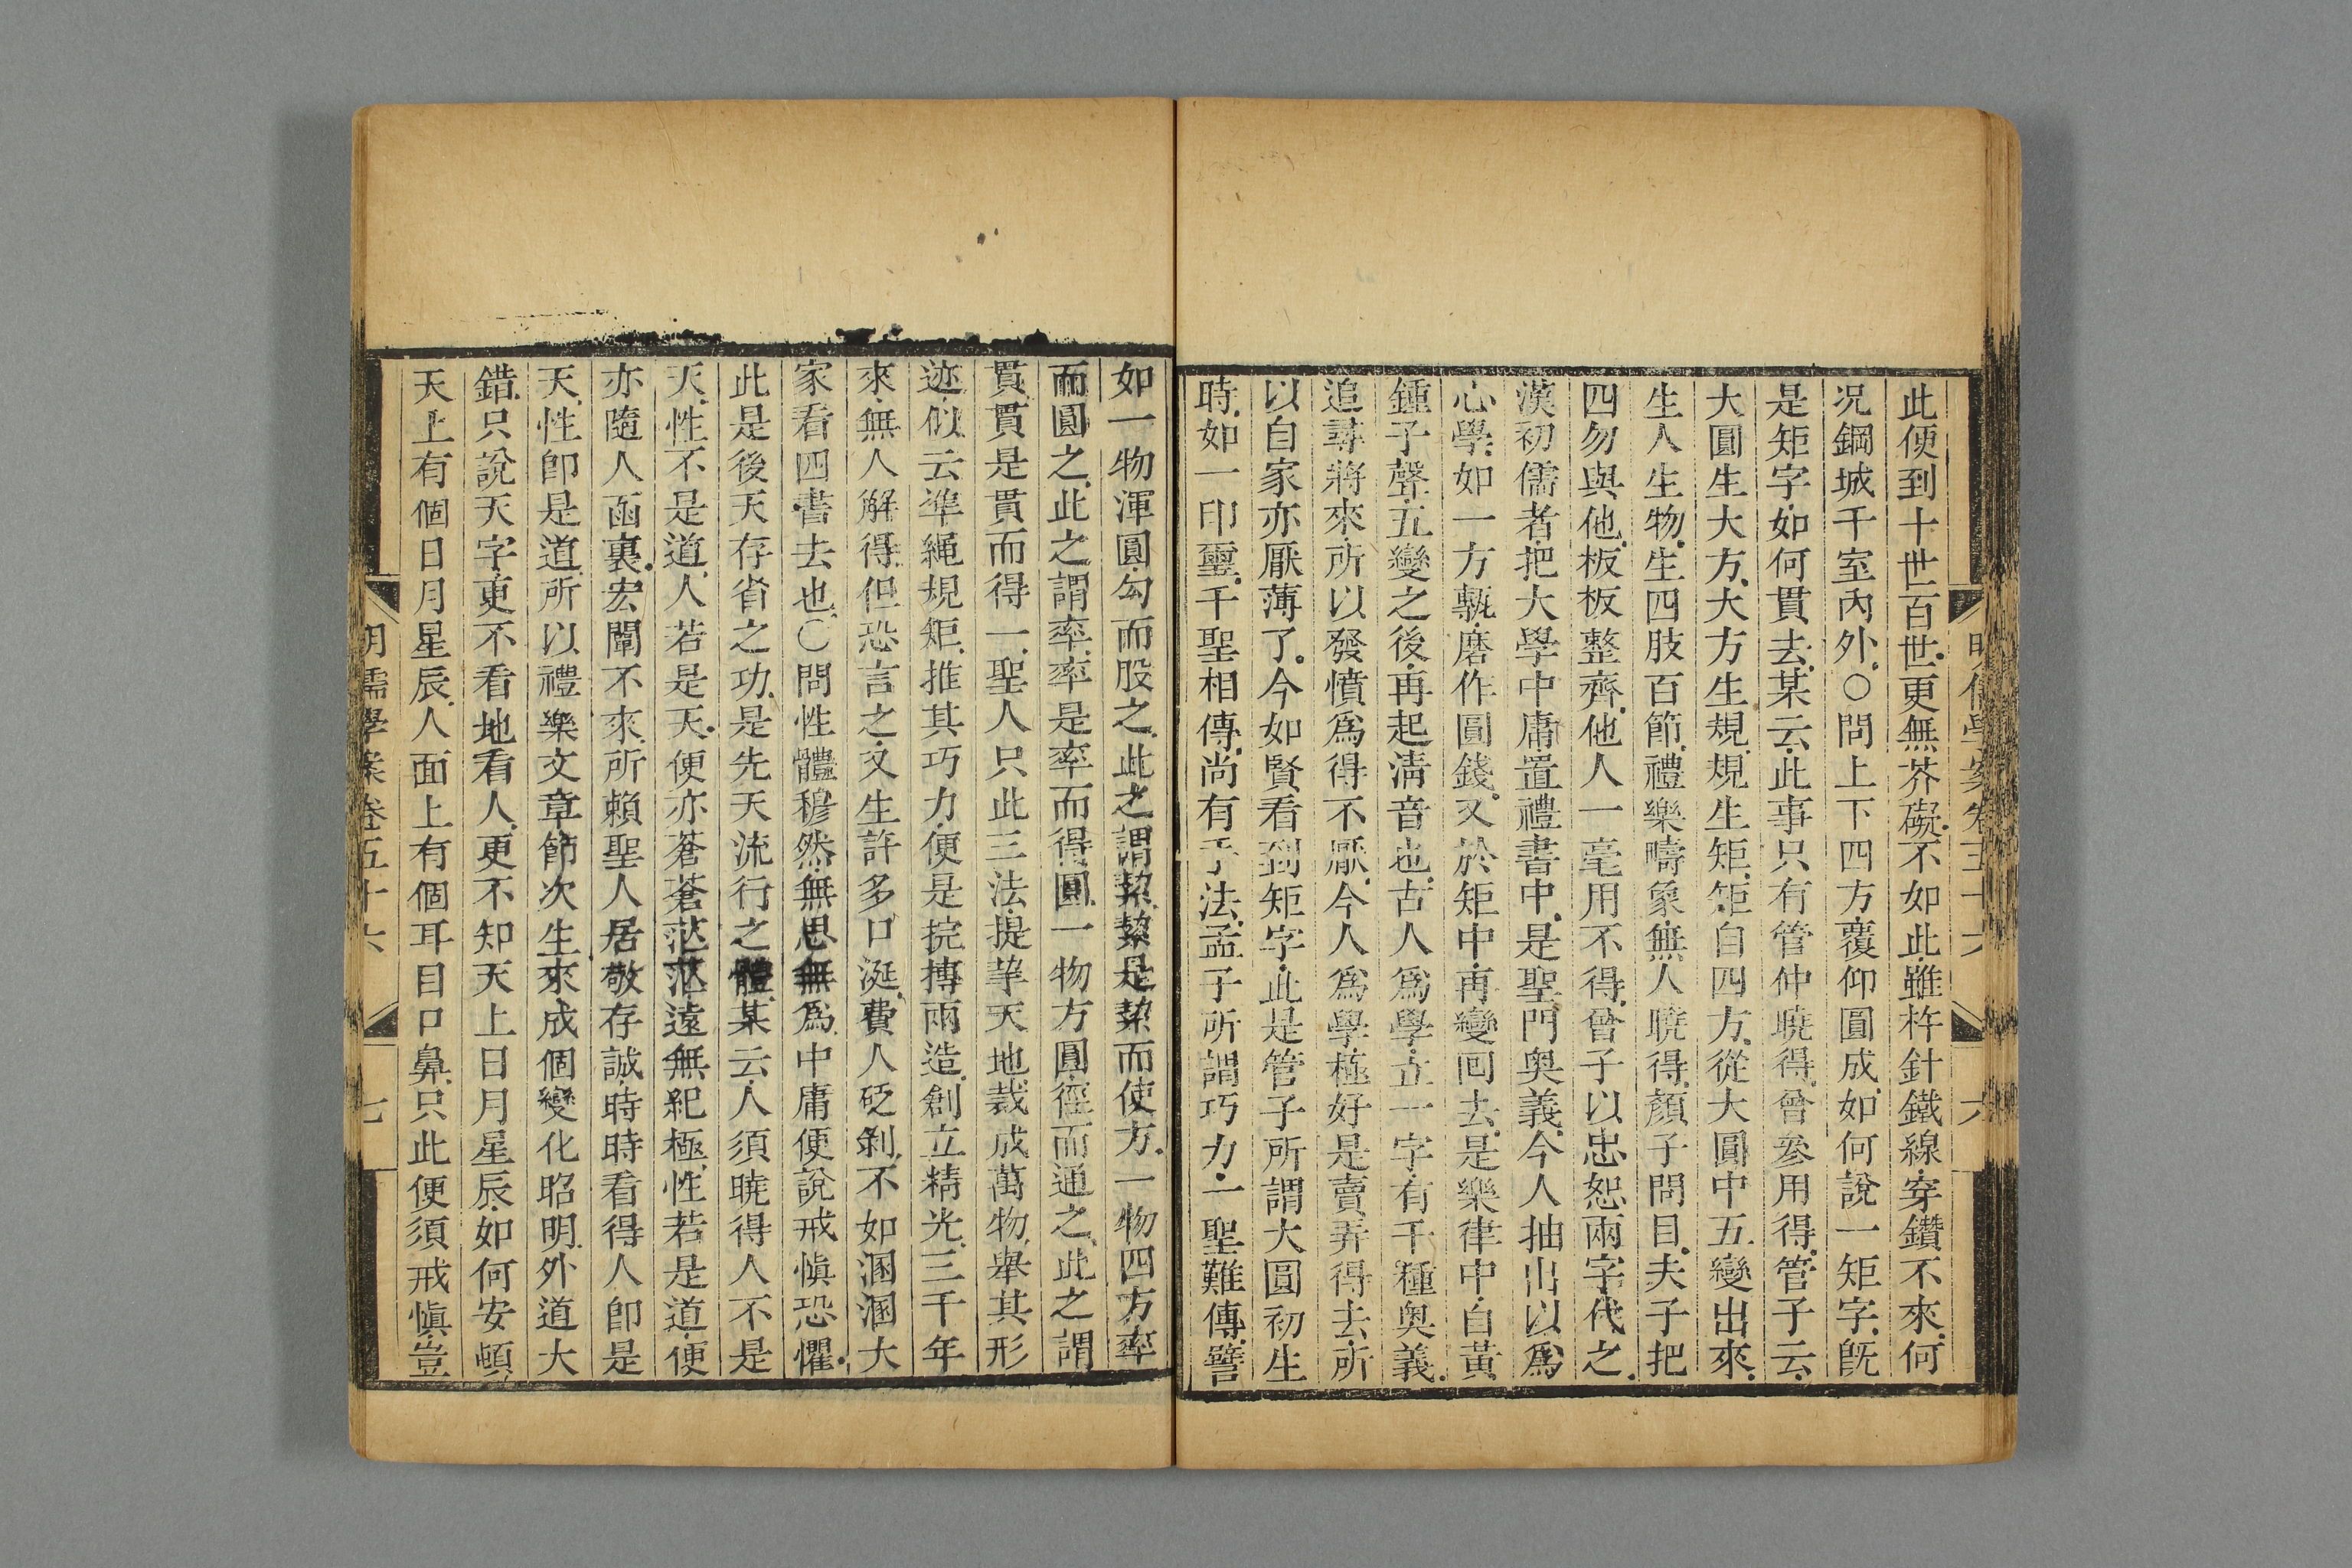 明儒學案卷五十六 六
此便到十世百世更無芥礙不如此雖杵針鐵線穿鑽不來何
况鋼城千室內外○問上下四方覆仰圓成如何說一矩字旣
是矩字如何貫去某云此事只有管仲曉得曾參用得管子云
大圓生大方大方生規規生矩矩自四方從大圓中五變出來
生人生物生四肢百節禮樂疇象無人曉得顏子問目夫子把
四勿與他板板整齊他人一毫用不得曾子以忠恕兩字代之
漢初儒者把大學中庸置禮書中是聖門奧義今人抽出以爲
心學如一方甎磨作圓錢又於矩中再變回去是樂律中自黃
鍾子聲五變之後再起淸音也古人爲學立一字有千種奧義
追尋將來所以發憤爲得不厭今人爲學極好是賣弄得去所
以自家亦厭薄了今如賢看到矩字此是管子所謂大圓初生
時如一印璽千聖相傳尚有手法孟子所謂巧力一聖難傳譬
如一物渾圓勾而股之此之謂絜絜是絜而使方一物四方率
而圓之此之謂率率是率而得圓一物方圓徑而通之此之謂
貫貫是貫而得一聖人只此三法提挈天地裁成萬物舉其形
迹似云準繩規矩推其巧力便是捖摶兩造創立精光三千年
來無人解得但恐言之又生許多口涎費人砭剝不如溷溷大
家看四書去也○問性體穆然無思無爲中庸便說戒愼恐懼
此是後天存省之功是先天流行之體某云人須曉得人不是
天性不是道人若是天便亦蒼蒼茫茫遠無紀極性若是道便
亦隨人函裏宏闡不來所賴聖人居敬存誠時時看得人卽是
天性卽是道所以禮樂文章節次生來成個變化昭明外道大
錯只說天字更不看地看人更不知天上日月星辰如何安頓
天上有個日月星辰人面上有個耳目口鼻只此便須戒愼豈
明儒學案卷五十六 七